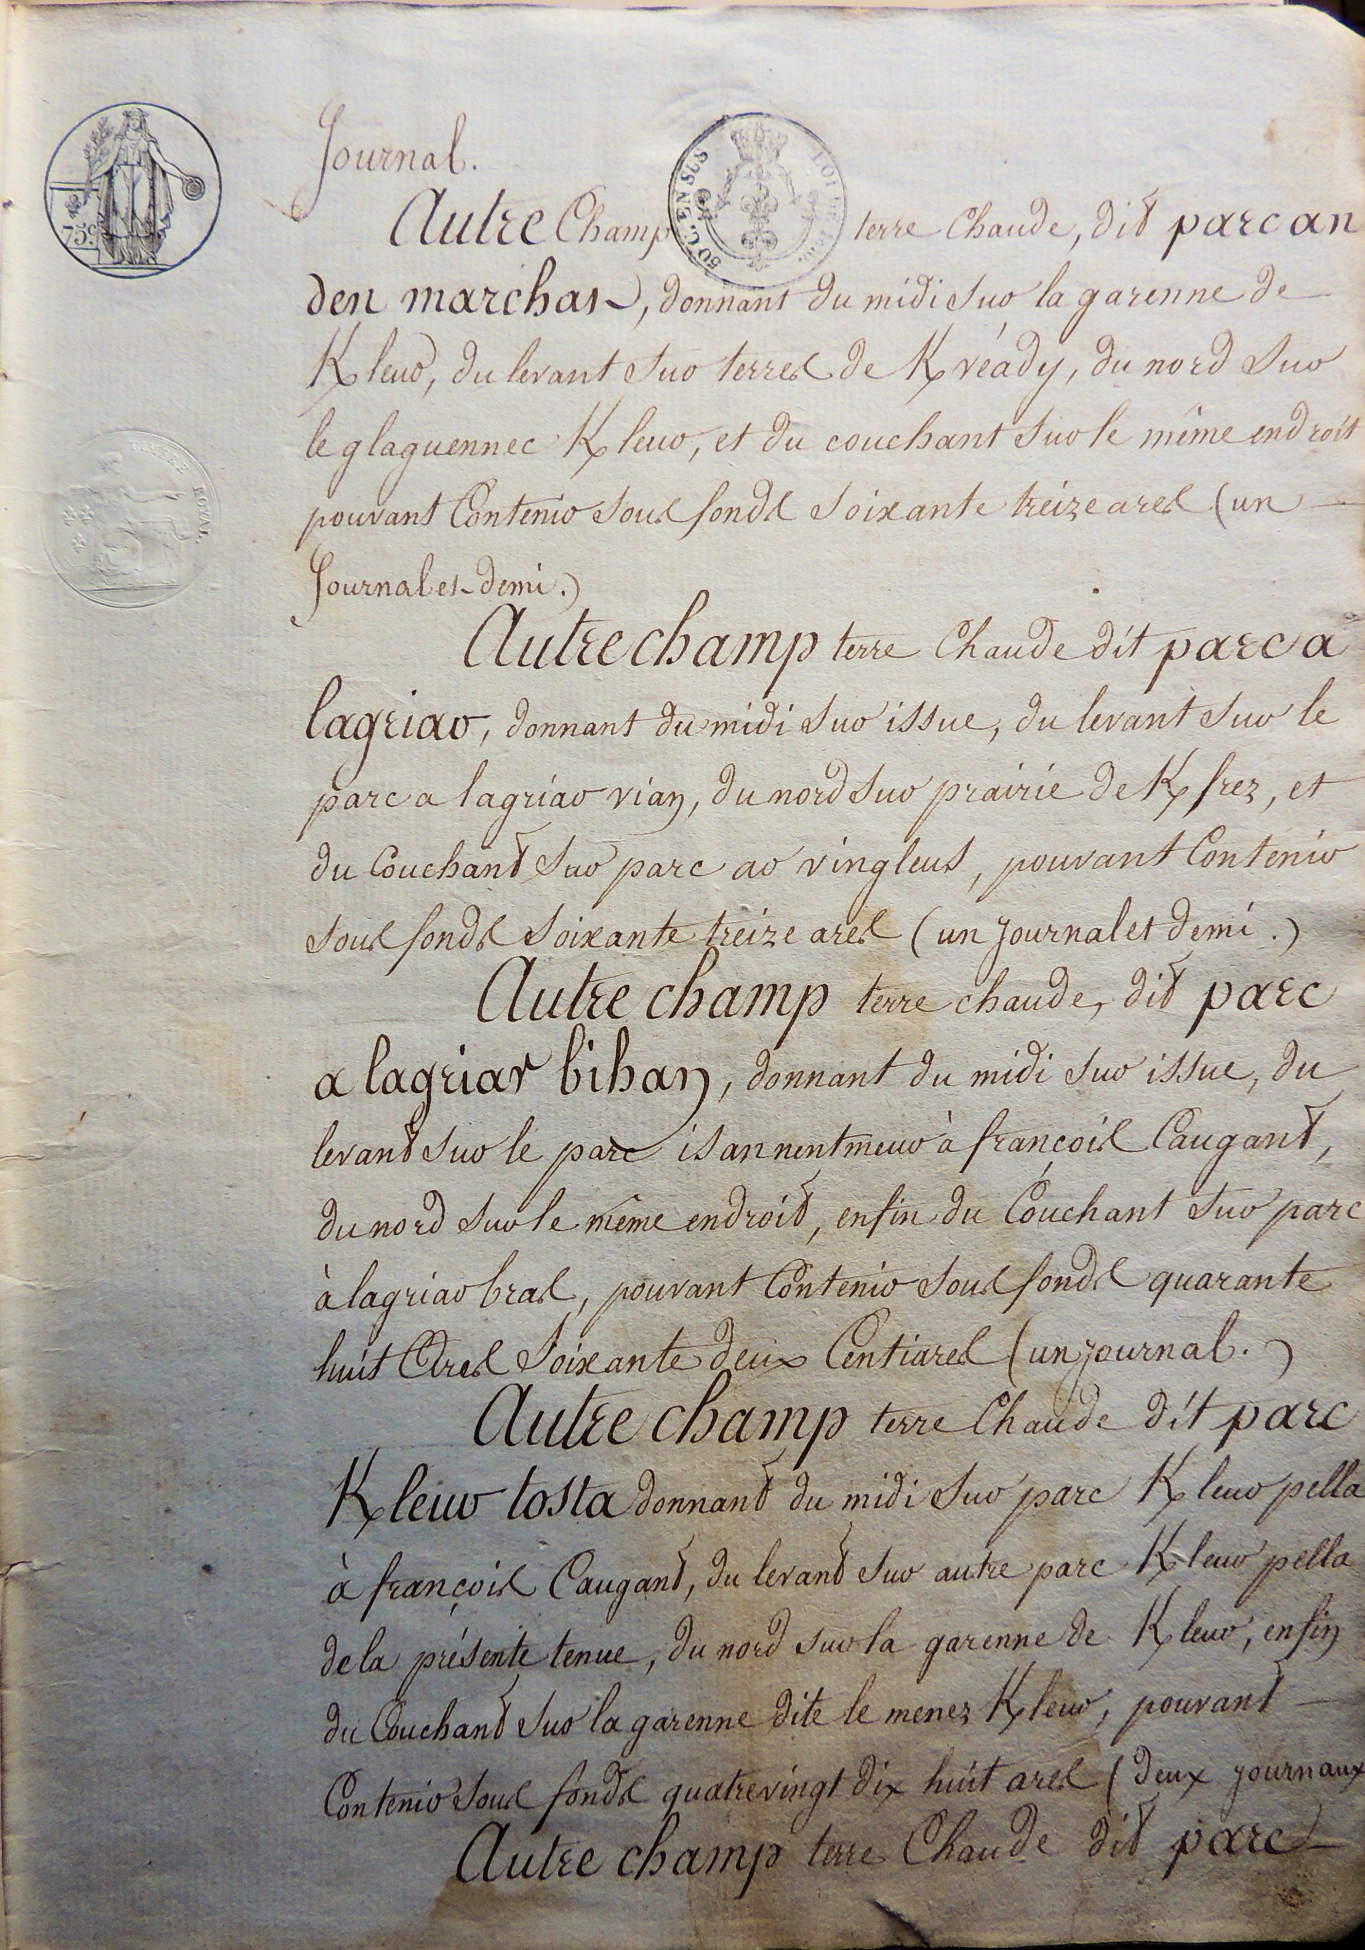 75c.
50 C. EN SUS
TIMBRE ROYAL
Journal.
Autre Champ terre Chaude, dit parc an
den marchar, donnant du midi sur la garenne de
Kleur, du levant sur terres de Kvéady, du nord sur
le glaguennec Kleur, et du couchant sur le même endroit
pouvant Contenir sous fonds soixante treize ares (un
Journal et demi.)
Autre champ terre Chaude dit parc a
lagriar, donnant du midi sur issue, du levant sur le
parc a lagriar vian, du nord sur prairie de K frez, et
du Couchant sur parc ar vingleus, pouvant Contenir
sous fonds soixante treize ares (un journal et demi.)
Autre champ terre chaude, dit parc
a lagriar bihan, donnant du midi sur issue, du
levant sur le parc isannentmeur à françois Caugant,
du nord sur le même endroit, enfin du Couchant sur parc
à lagriar bras, pouvant Contenir sous fonds quarante
huit Ares soixante deux Centiares (un journal.)
Autre champ terre Chaude dit parc
Kleur tosta donnant du midi sur parc Kleur pella
à françois Caugant, du levant sur autre parc Kleur pella
de la présente tenue, du nord sur la garenne de Kleur, enfin
du Couchant sur la garenne dite le menez Kleur, pouvant
Contenir sous fonds quatrevingt dix huit ares (deux journaux)
Autre champ terre Chaude dit parc